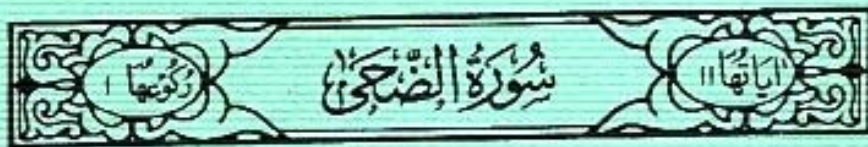 اٰيَاتُهَا ١١ سُوْرَةُ الضُّحٰى رُكُوْعُهَا ١